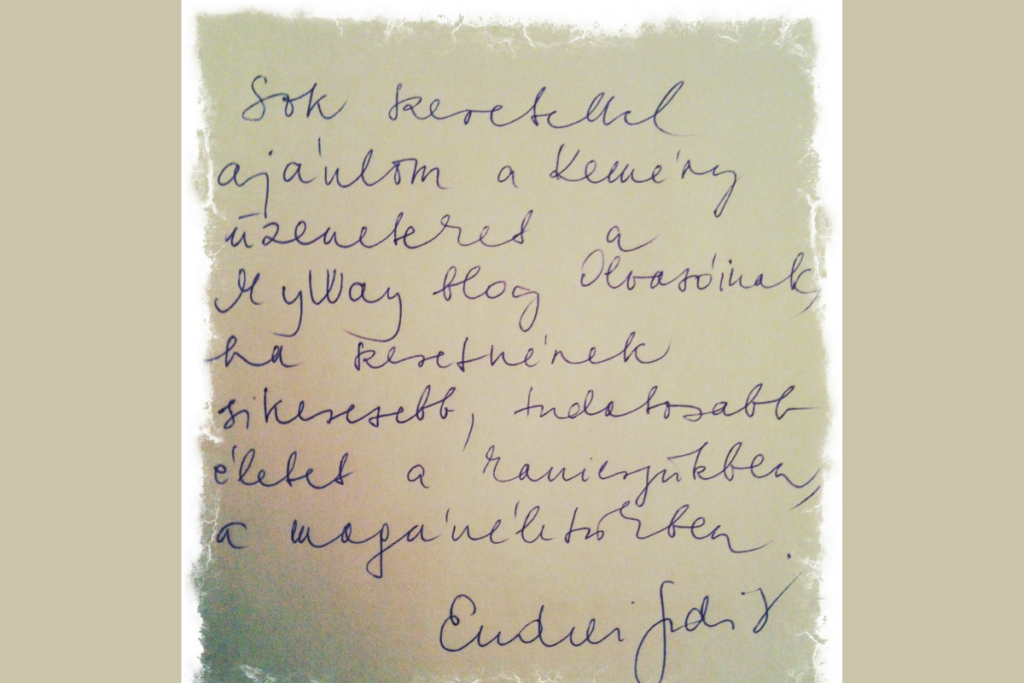 Sok szeretettel
ajánlom a Kemény
üzeneteket a
MyWay blog Olvasóinak,
ha szeretnének
sikeresebb, tudatosabb
életet a
a magánéletükben.
Endrei Judit